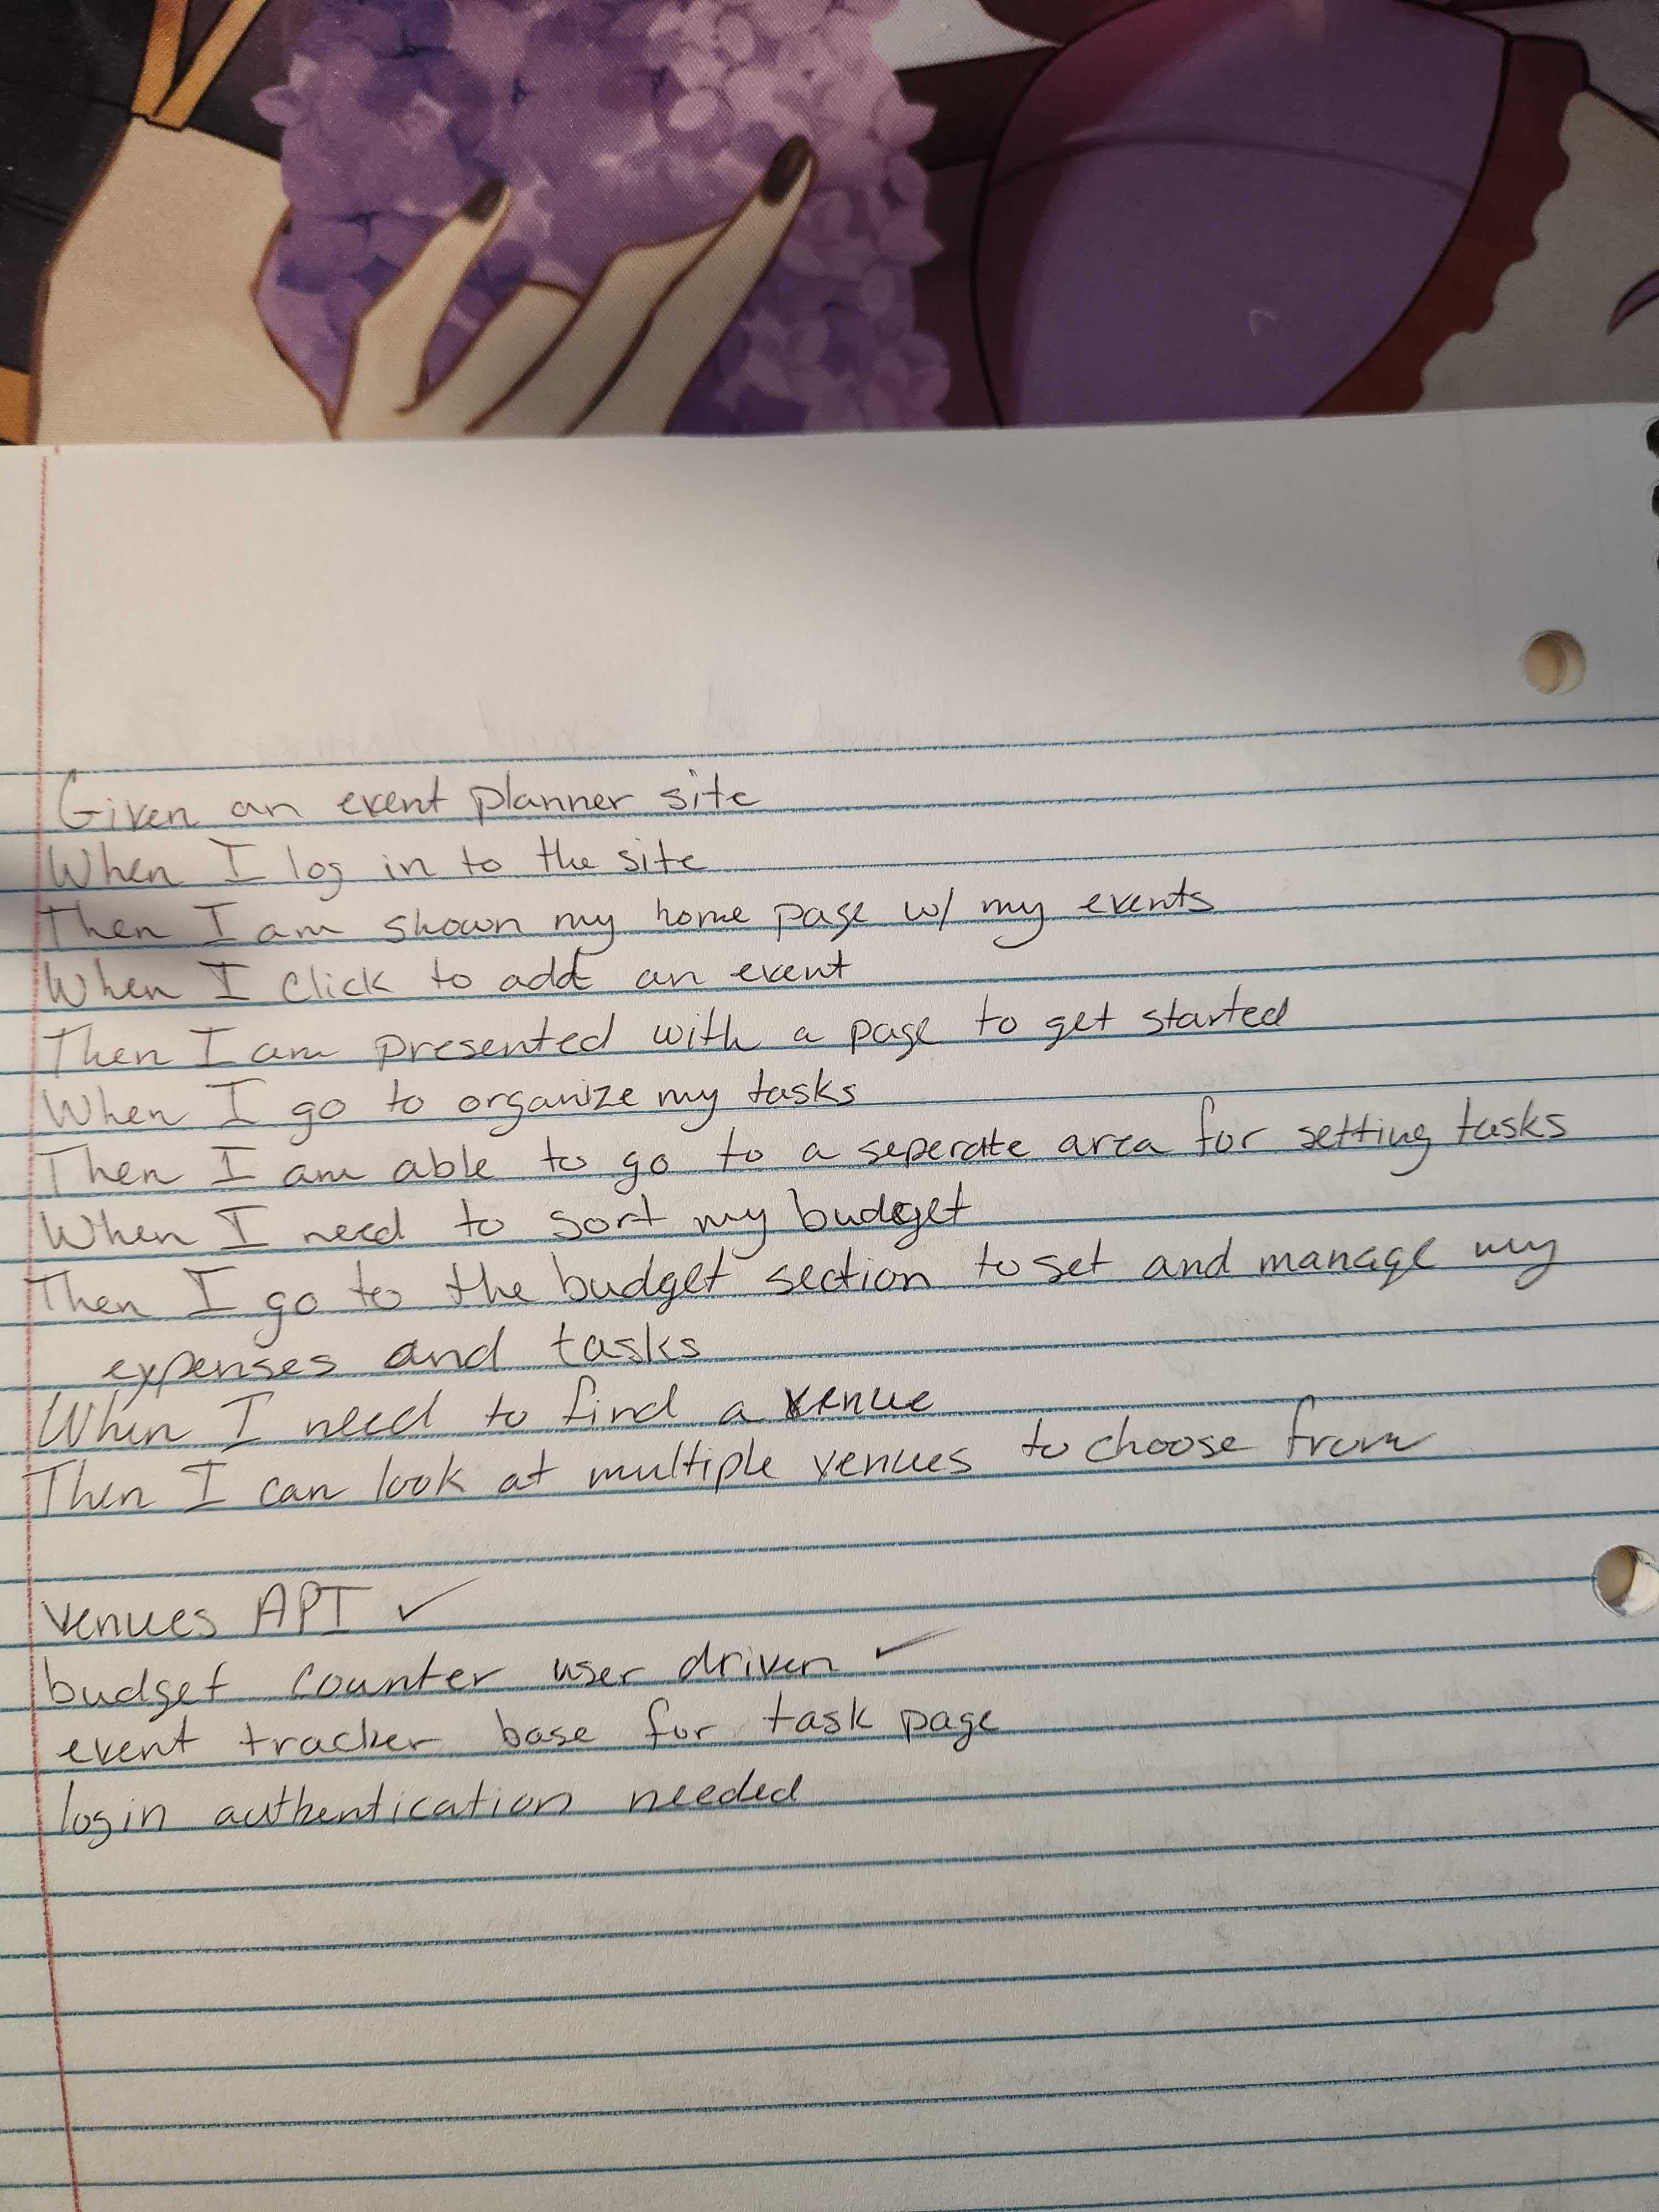 Given an event planner site
When I log in to the site
Then I am shown my home page w/ my events
When I click to add an event
Then I am presented with a page to get started
When I go to organize my tasks
Then I am able to go to a seperate area for setting tasks
When I need to sort my budget
Then I go to the budget section to set and manage my
expenses and tasks
When I need to find a venue
Then I can look at multiple venues to choose from
venues API ✓
budget counter user driven ✓
event tracker base for task page
login authentication needed